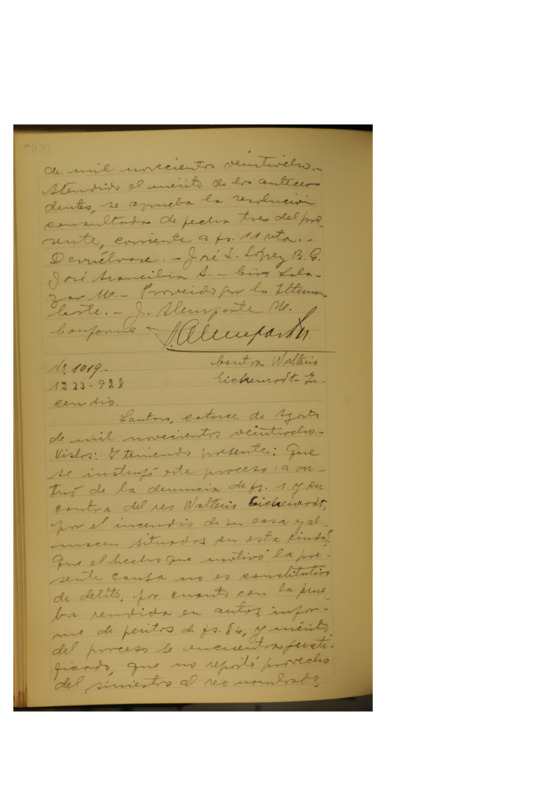 de mil novecientos veintiocho.-
Atendido el mérito de los antece-
dentes, se aprueba la resolución
consultada de fecha tres del pre-
sente, corriente a fs. 11 vta.-
Devuélvase.- José S. López B. G.
José Arancibia S.- Ciro Sala-
zar M.- Proveído por la Iltma
Corte.- J. Alemparte M.
Conforme
J. Alemparte M
No 1019.- Contra Walterio
1233-928 Eichenrodt. In-
cendio.
Lautaro, catorce de Agosto
de mil novecientos veintiocho-
Vistos: Y teniendo presente: Que
se instruyó este proceso a
de la denuncia de fs. 1 y en
contra del reo Walterio Eichenrodt,
por el incendio de su casa y al-
macen situados en esta ciudad.
Que el hecho que motivó la pre-
sente causa no es constitutivo
de delito, por cuanto con la prue-
ba rendida en autos, infor-
me de peritos de fs. 64, y mérito
del proceso se encuentra justi-
ficado, que no reportó provecho
del siniestro al reo nombrado,